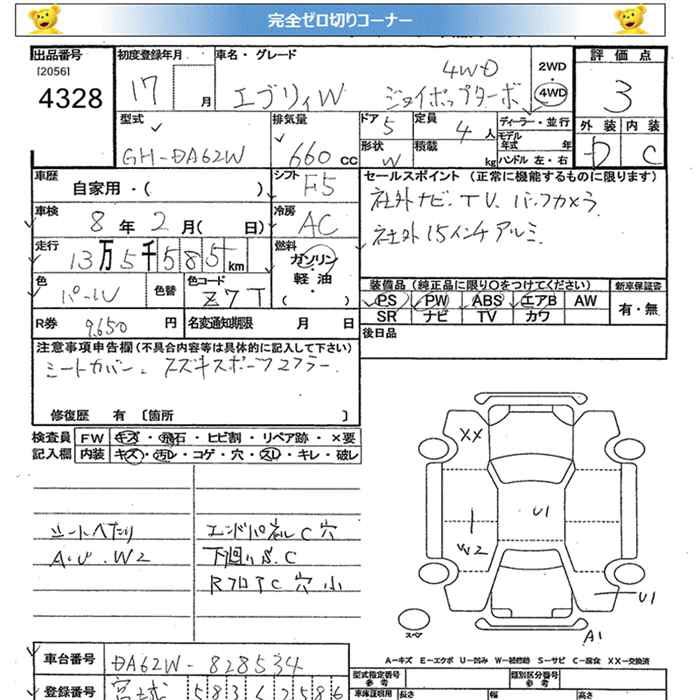 完全ゼロ切りコーナー
出品番号
[2056]
4328
初度登録年月
17
月
車名・グレード
エブリィW ジョイポップターボ
4WD
2WD
・
4WD
評価点
3
外装 内装
D C
型式
GH-DA62W
排気量
660 cc
ドア
5
定員
4 人
ディーラー・並行
モデル
年式 年
形状
W
積載
kg
ハンドル 左・右
車歴
自家用・( )
シフト
F5
車検
8 年 2 月( 日)
冷房
AC
走行
13万5千585km
燃料
ガソリン・
軽油・
( )
色
パール
色替
色コード
Z7T
R券
9,650 円
名変通知期限 月 日
セールスポイント (正常に機能するものに限ります)
社外ナビ・TV. バックカメラ
社外15インチアルミ
装備品 (純正品に限り○をつけてください)
新車保証書
PS PW ABS エアB AW
SR ナビ TV カワ
有・無
後日品
注意事項申告欄(不具合内容等は具体的に記入して下さい)
シートカバー. スズキスポーツマフラー
修復歴 有 〔箇所 〕
検査員
記入欄
FW キズ・飛石・ヒビ割・リペア跡・×要
内装 キズ・汚レ・コゲ・穴・スレ・キレ・破レ
シートヘたり
A.U.W2
エンドパネルC穴
下廻りS.C
RフロアC 穴 小
XX
U1
W2
U1
スペア
A1
A-キズ E-エクボ U-凹み W-補修跡 S-サビ C-腐食 XX-交換済
車台番号
DA62W-828534
登録番号
宮城 583
型式指定番号
参考
類別区分番号
参考
車庫証明用
長さ
幅
高さ